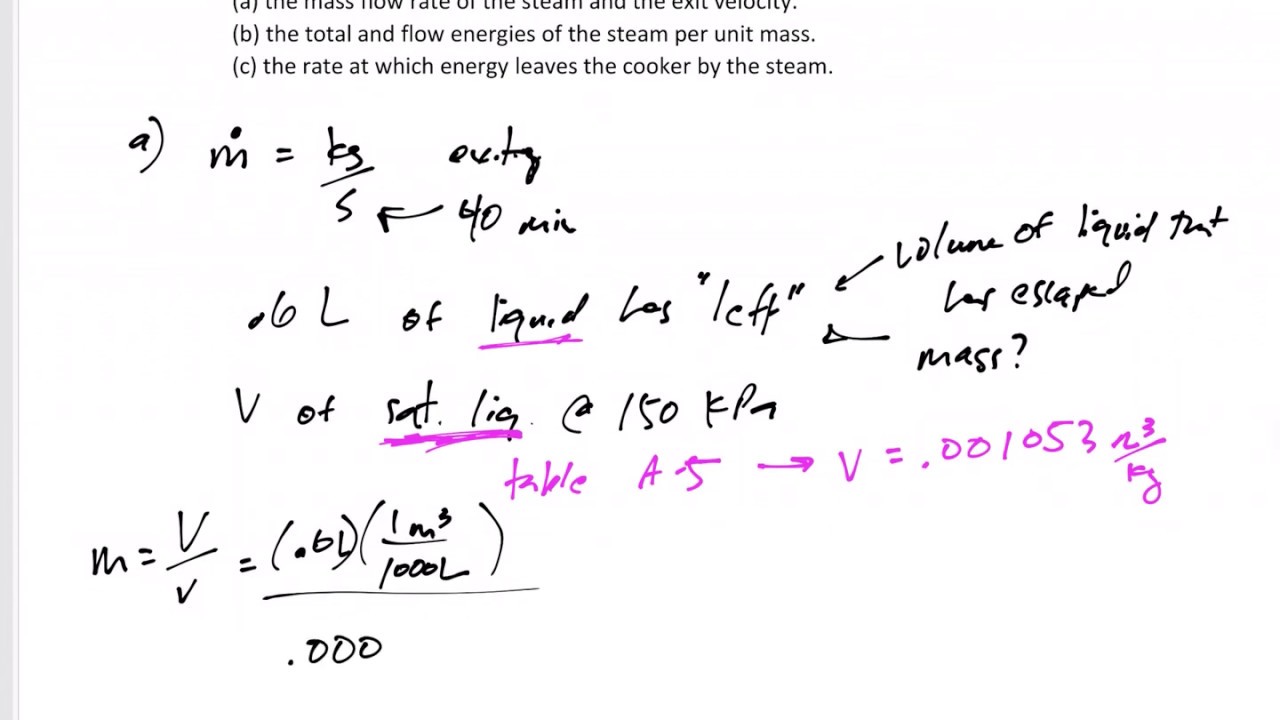 (a) the mass flow rate of the steam and the exit velocity.
(b) the total and flow energies of the steam per unit mass.
(c) the rate at which energy leaves the cooker by the steam.
a) ṁ = kg/s exiting
40 min
.6 L of liquid has "left"
volume of liquid that
has escaped
mass?
V of sat. liq. @ 150 kPa
table A-5 → v = .001053 m³/kg
m = V/v = (.6L)(1 m³/1000L)
.000